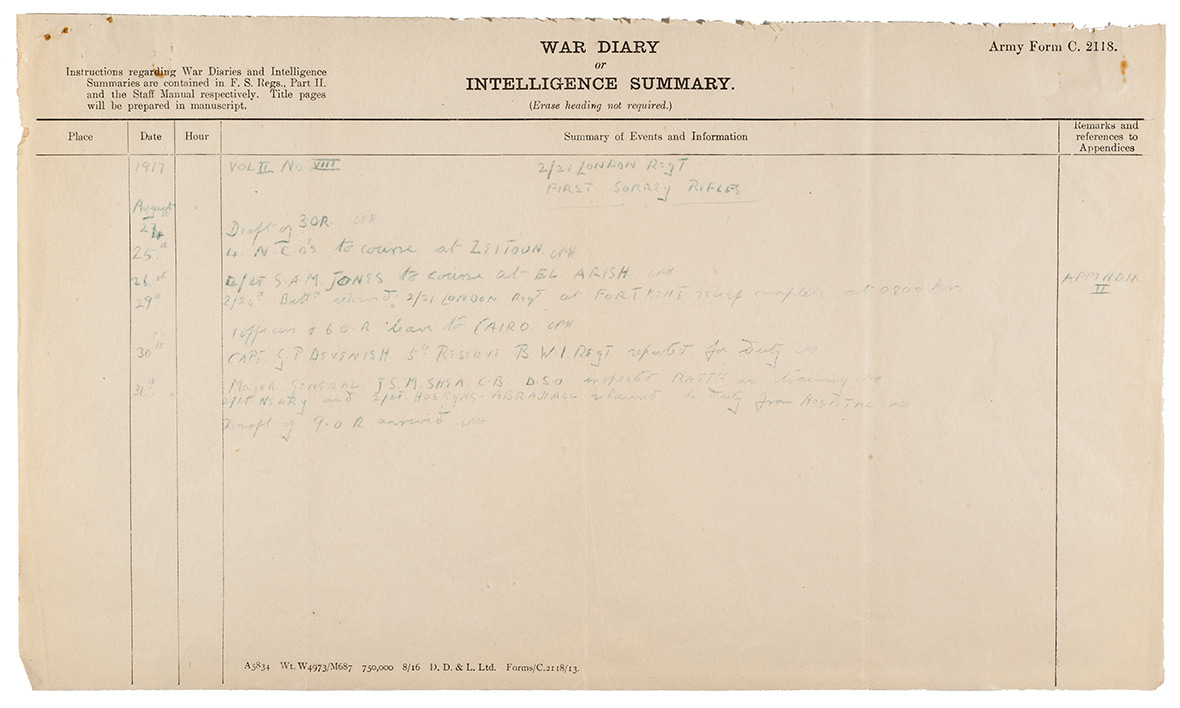 WAR DIARY
or
INTELLIGENCE SUMMARY.
(Erase heading not required.)
Army Form C. 2118.
Instructions regarding War Diaries and Intelligence
Summaries are contained in F. S. Regs., Part II.
and the Staff Manual respectively. Title pages
will be prepared in manuscript.
Place Date Hour Summary of Events and Information Remarks and references to Appendices
1917 VOL II No VIII 2/21 LONDON Regt
FIRST SURREY RIFLES
August
24 Draft of 3 OR
25th 4 N.C.O's to course at ZEITOUN
26th 2/Lt S.A.M. JONES to course at EL ARISH APPENDIX II
29th 2/24th Battn relieved 2/21 LONDON Regt at FORT KENT relief complete at 0800 hrs
1 officer & 6 O.R leave to CAIRO
30th CAPT. G.P DEVENISH 5th RESERVE B W I. Regt reported for Duty
31st MAJOR GENERAL J.S.M. SHEA C.B. D.S.O inspected BATTn in training
2/Lt and 2/Lt. HOSKYNS-ABRAHALL returned to Duty from HOSPITAL
Draft of 9 O R arrived
A5834 Wt. W4973/M687 750,000 8/16 D. D. & L. Ltd. Forms/C.2118/13.